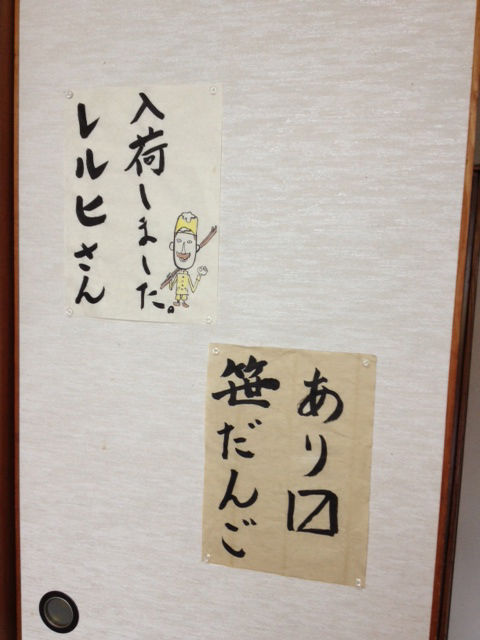 入荷しました。
レルヒさん
あり〼
笹だんご